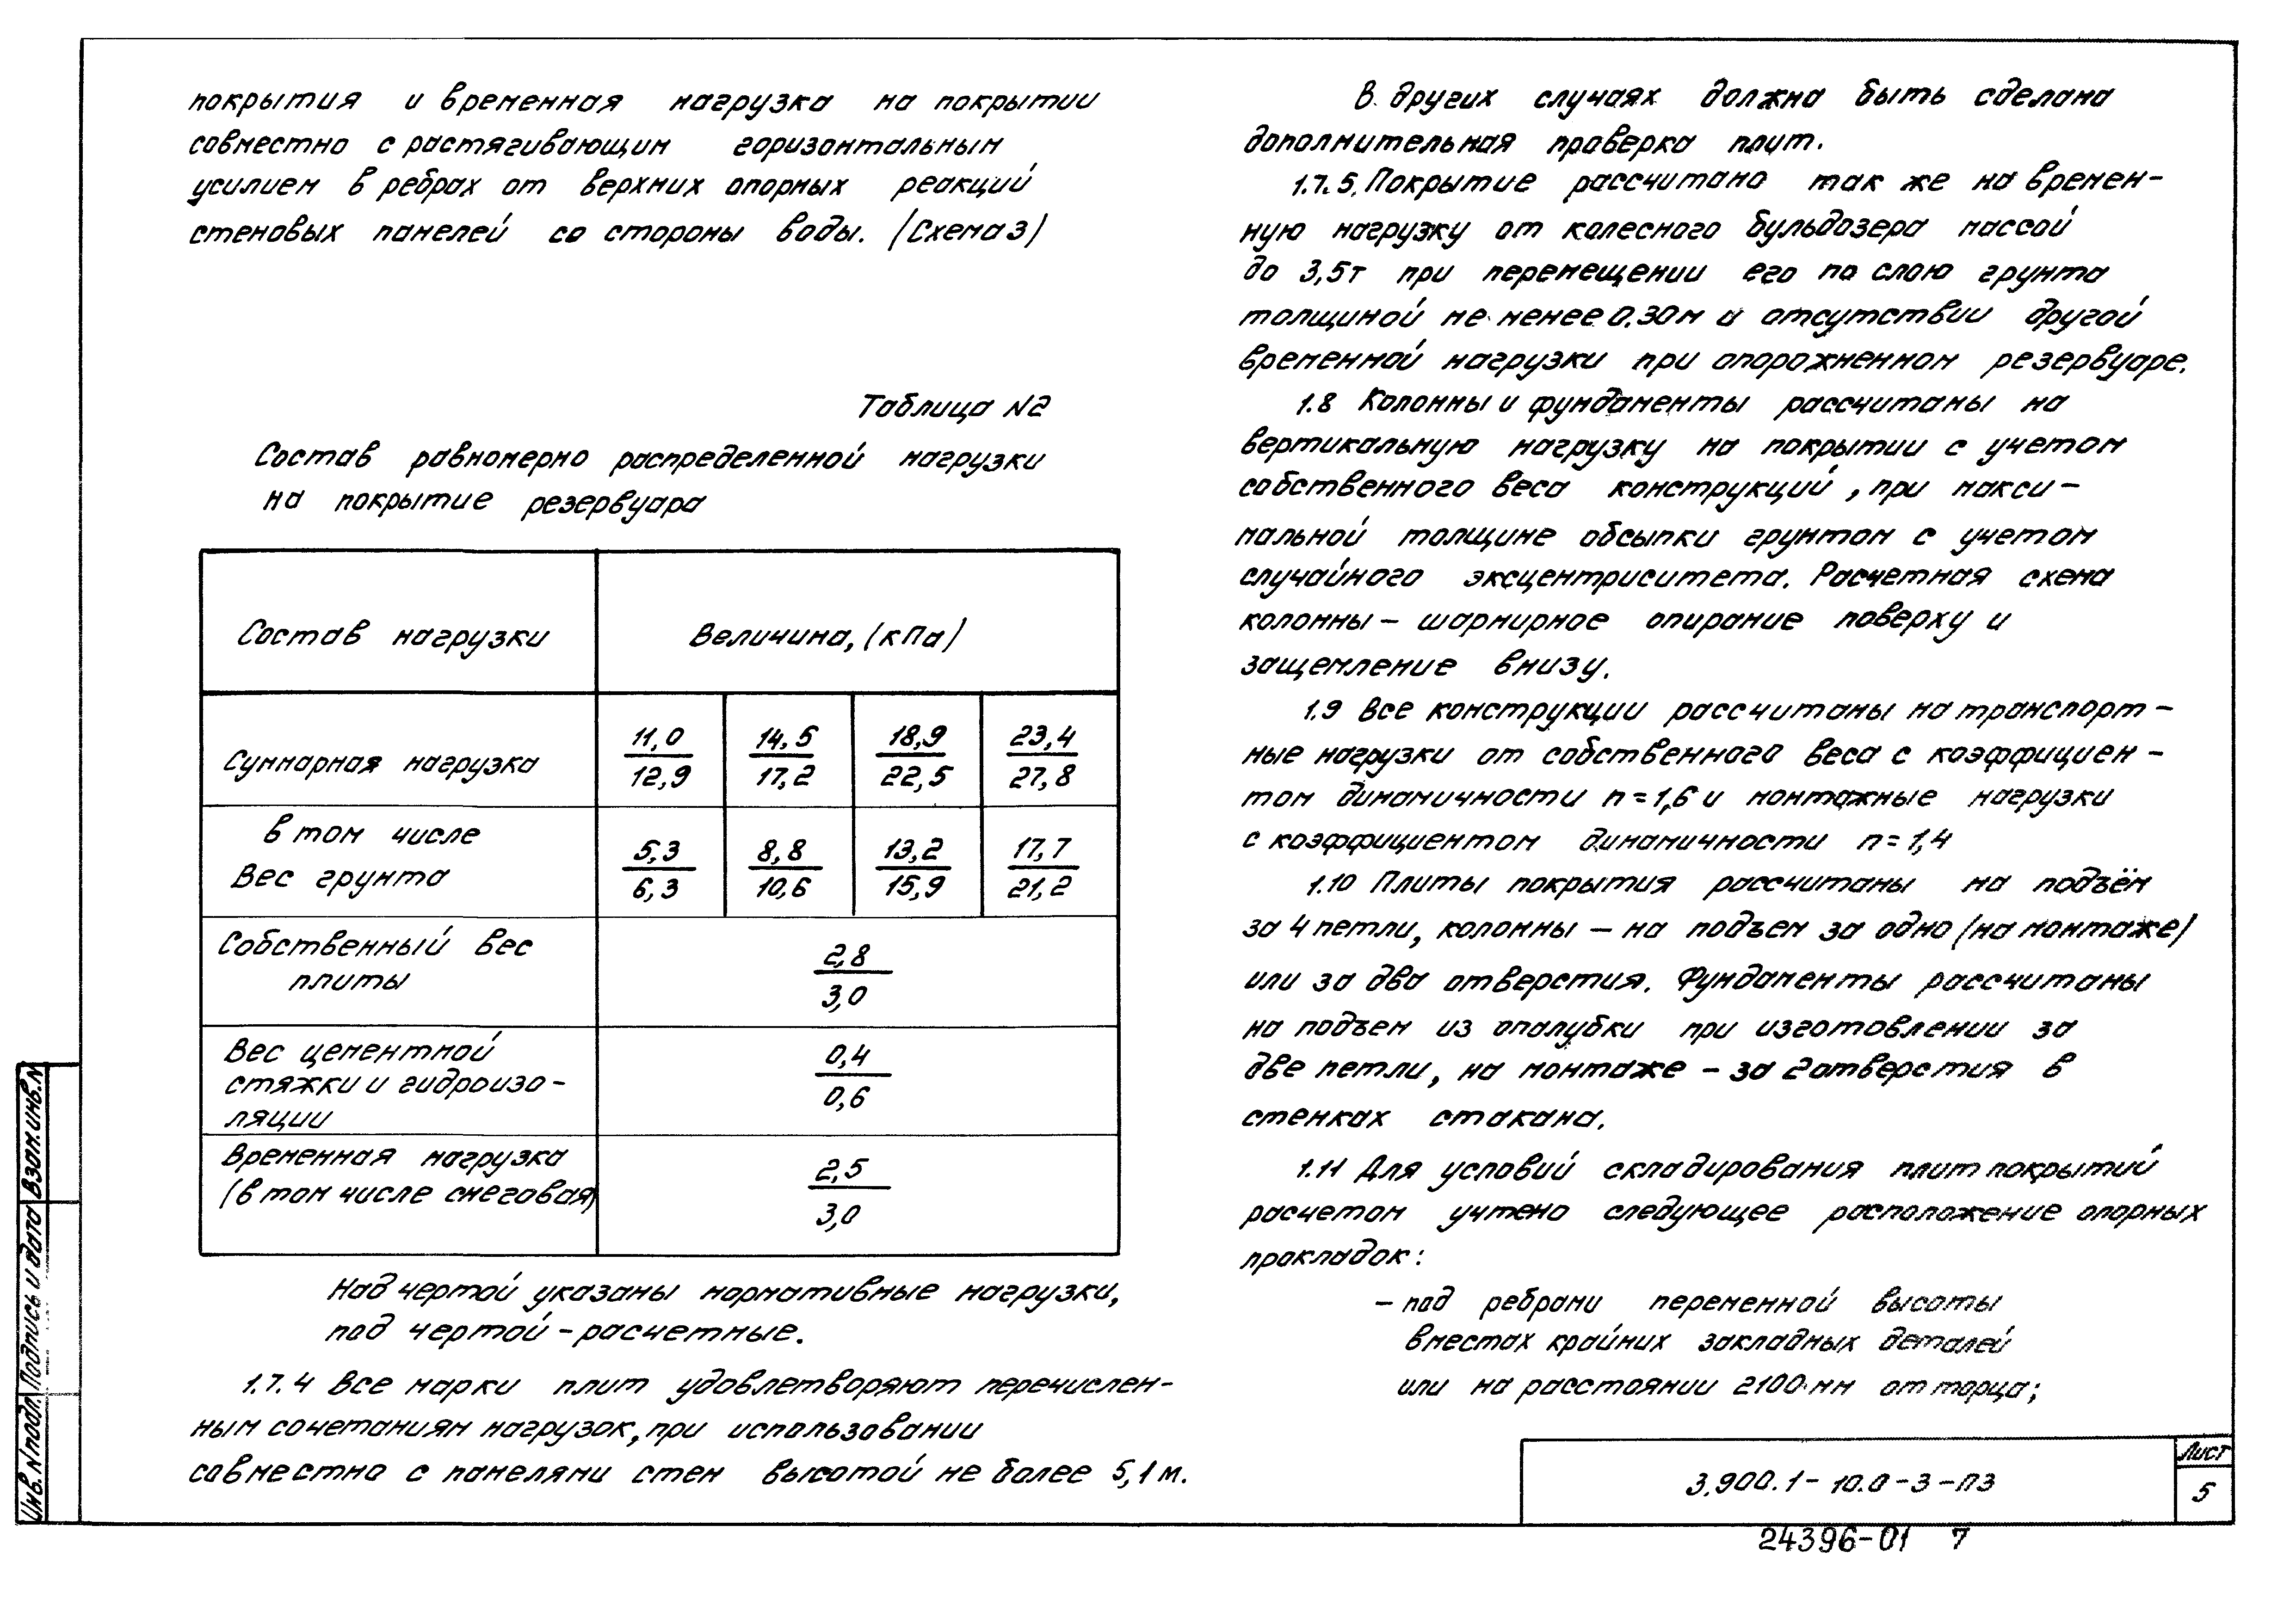 покрытия и временная нагрузка на покрытии
совместно с растягивающим горизонтальным
усилием в ребрах от верхних опорных реакций
стеновых панелей со стороны воды. (Схема 3)
Таблица N2
Состав равномерно распределенной нагрузки
на покрытие резервуара
Состав нагрузки
Величина, (кПа)
Суммарная нагрузка
11,0 14,5 18,9 23,4
12,9 17,2 22,5 27,8
в том числе
Вес грунта
5,3 8,8 13,2 17,7
6,3 10,6 15,9 21,2
Собственный вес
плиты
2,8
3,0
Вес цементной
стяжки и гидроизо-
ляции
0,4
0,6
Временная нагрузка
(в том числе снеговая)
2,5
3,0
Над чертой указаны нормативные нагрузки,
под чертой - расчетные.
1.7.4 Все марки плит удовлетворяют перечислен-
ным сочетаниям нагрузок, при использовании
совместно с панелями стен высотой не более 5,1 м.
В других случаях должна быть сделана
дополнительная проверка плит.
1.7.5. Покрытие рассчитано так же на времен-
ную нагрузку от колесного бульдозера массой
до 3,5т при перемещении его по слою грунта
толщиной не менее 0.30м и отсутствии другой
временной нагрузки при опорожненном резервуаре.
1.8 Колонны и фундаменты рассчитаны на
вертикальную нагрузку на покрытии с учетом
собственного веса конструкций, при макси-
мальной толщине обсыпки грунтом с учетом
случайного эксцентриситета. Расчетная схема
колонны - шарнирное опирание поверху и
защемление внизу.
1.9 Все конструкции рассчитаны на транспорт-
ные нагрузки от собственного веса с коэффициен-
том динамичности n=1,6 и монтажные нагрузки
с коэффициентом динамичности n=1,4
1.10 Плиты покрытия рассчитаны на подъём
за 4 петли, колонны - на подъем за одно (на монтаже)
или за два отверстия. Фундаменты рассчитаны
на подъем из опалубки при изготовлении за
две петли, на монтаже - за 2 отверстия в
стенках стакана.
1.11 Для условий складирования плит покрытий
расчетом учтено следующее расположение опорных
прокладок:
- под ребрами переменной высоты
в местах крайних закладных деталей
или на расстоянии 2100 мм от торца;
3.900.1-10.0-3-ПЗ
Лист
5
24396-01 7
Инв. N подл. Подпись и дата Взам. инв. N